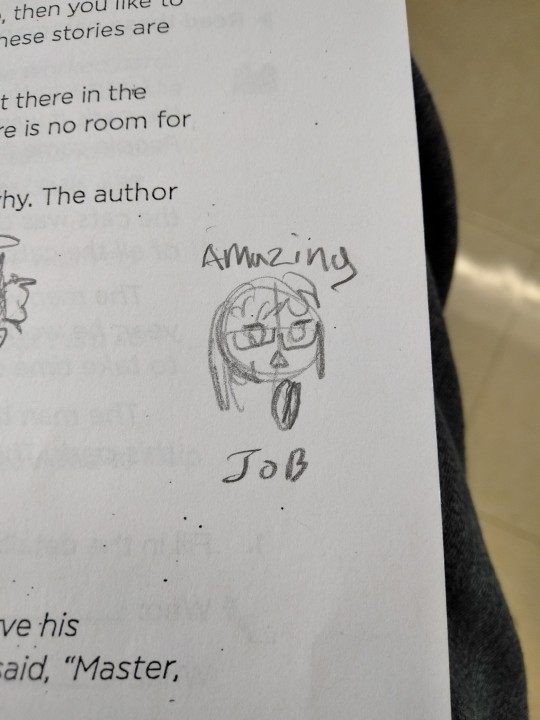 , then you like to
hese stories are
t there in the
re is no room for
hy. The author
Amazing
JOB
ve his
said, "Master,